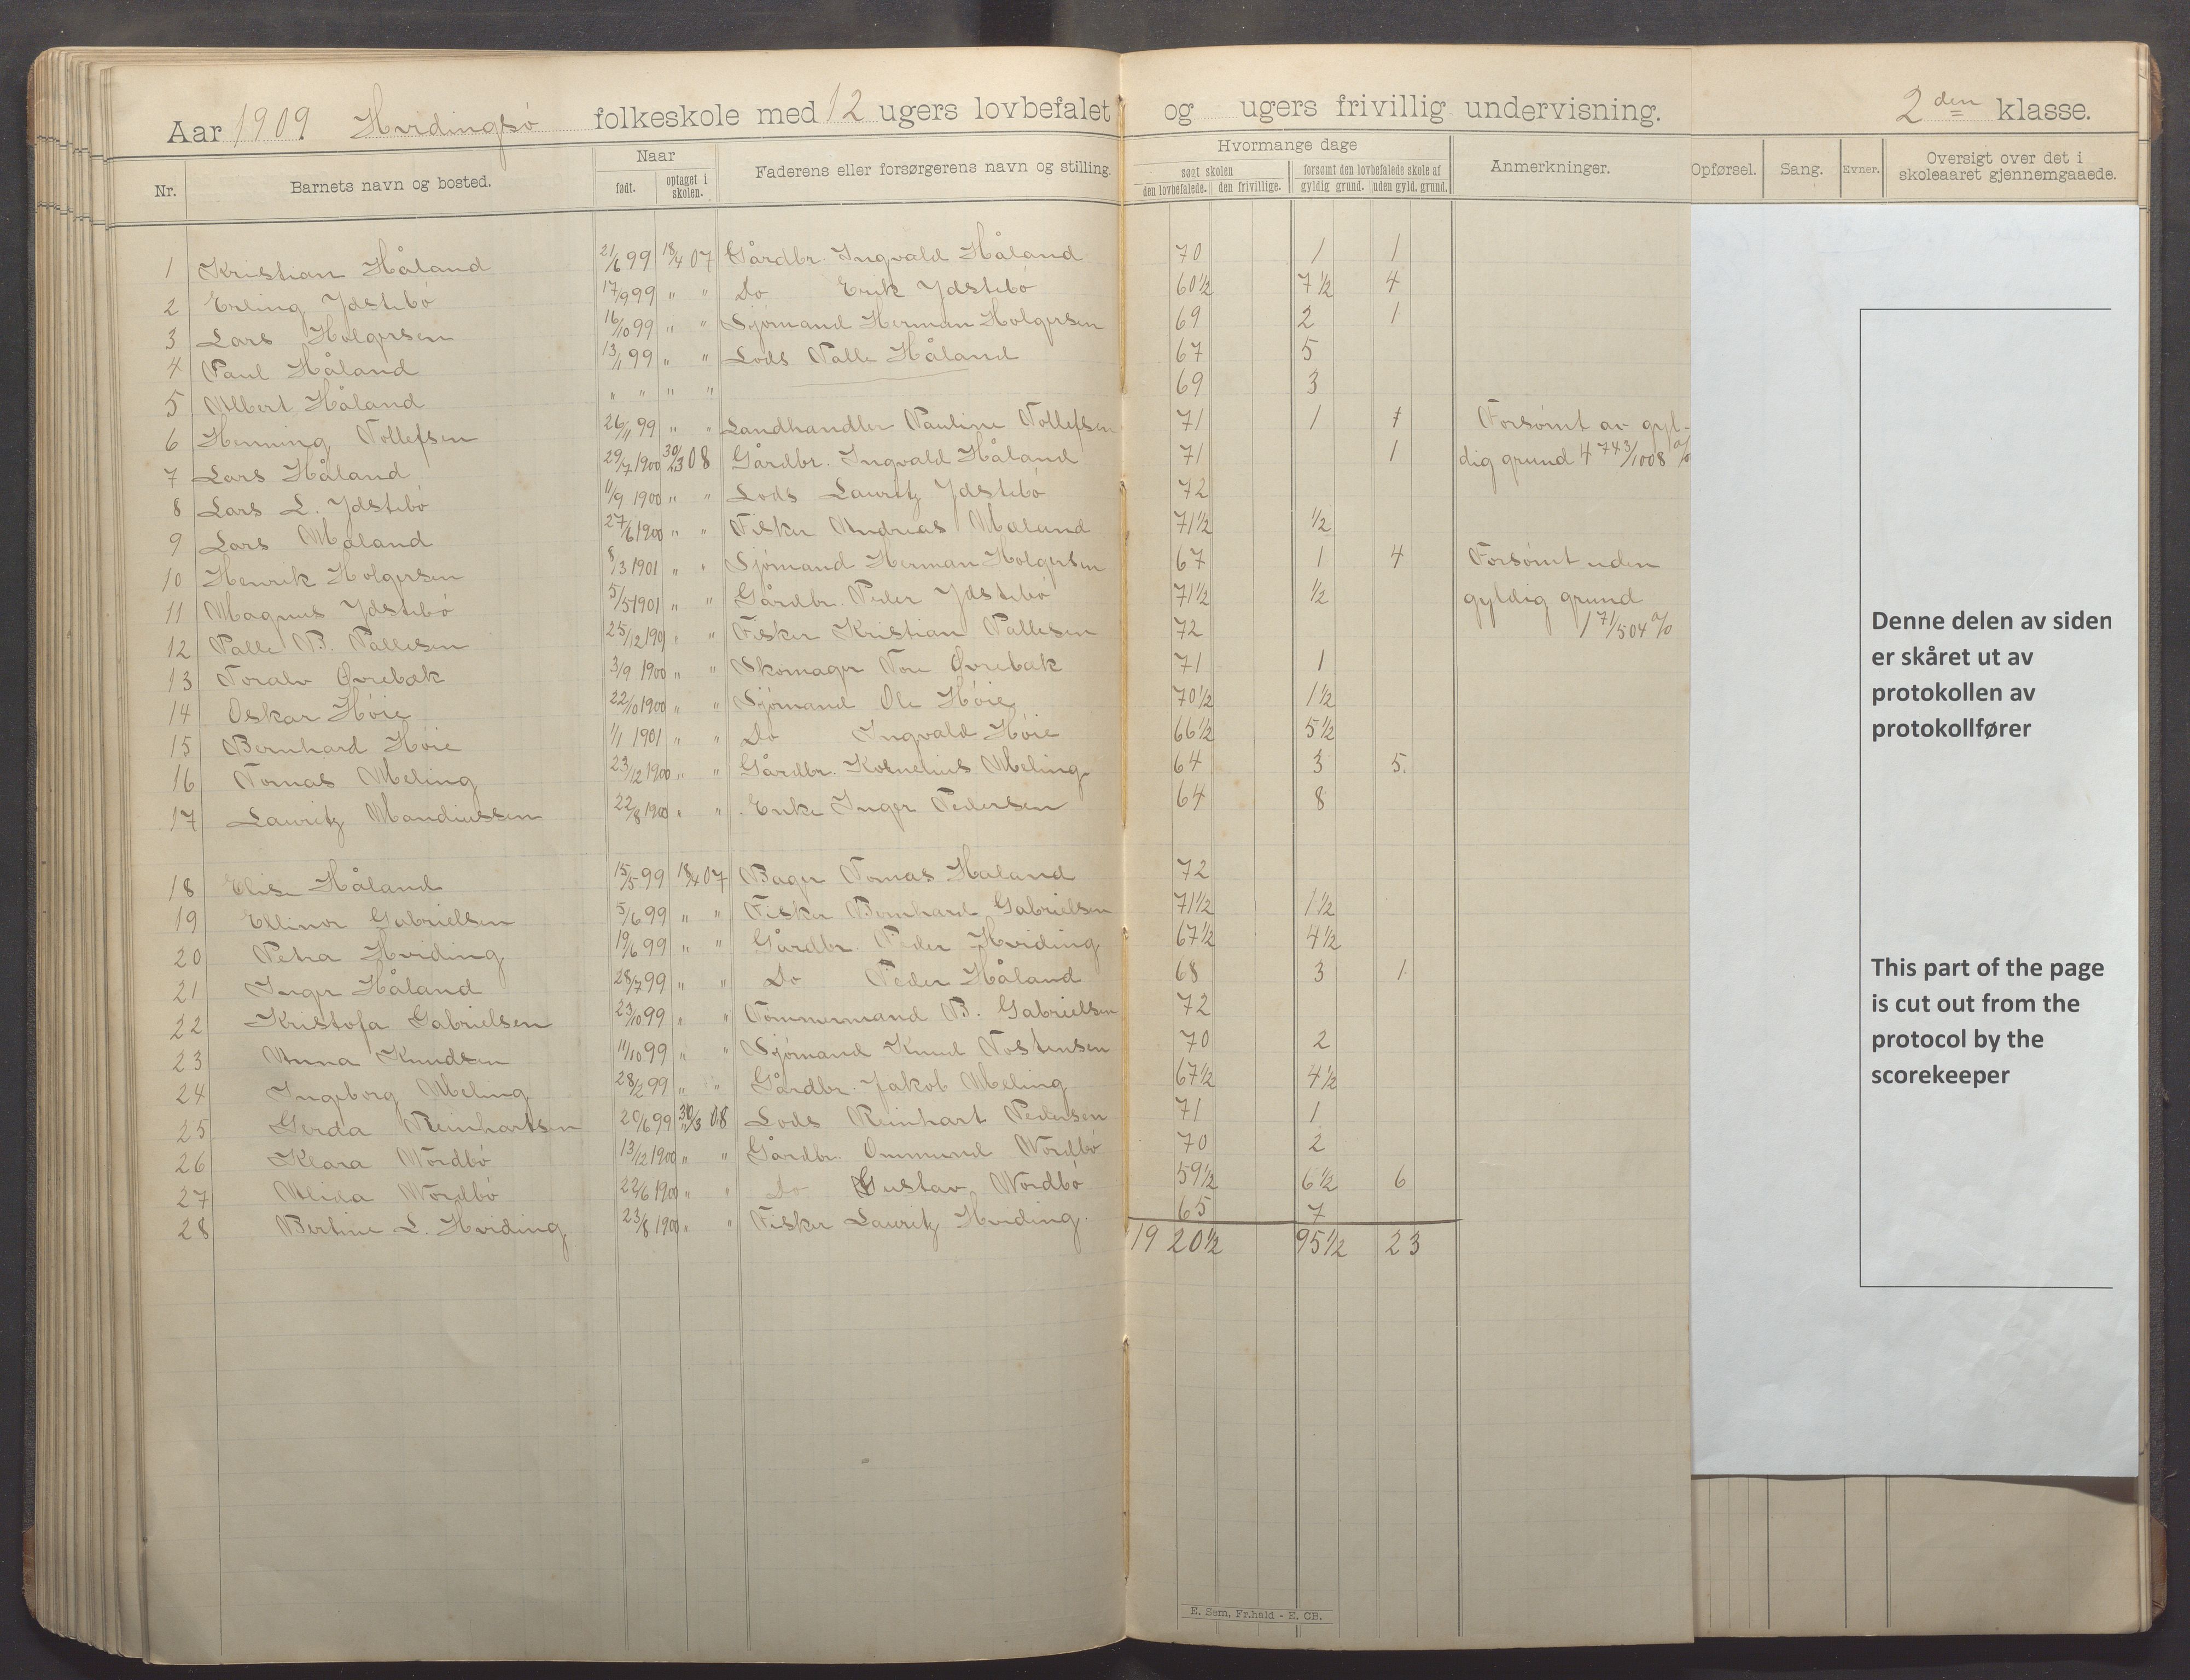 Aar 1909 Hvidingsö folkeskole med 12 ugers lovbefalet og ugers frivillig undervisning. 2den klasse.
Nr. Barnets navn og bosted. Naar født. optaget i skolen. Faderens eller forsørgerens navn og stilling. Hvormange dage søgt skolen den lovbefalede. den frivillige. forsømt den lovbefalede skole af gyldig grund. uden gyld. grund. Anmerkninger. Opførsel. Sang. Evner. Oversigt over det i skoleaaret gjennemgaaede.
1 Kristian Håland 21/6 99 18/4 07 Gårdbr. Ingvald Håland 70 1 1
2 Erling Ydstebö 17/9 99 " " Do Erik Ydstebö 60½ 7½ 4
3 Lars Holgersen 16/10 99 " " Sjömand Herman Holgersen 69 2 1
4 Paul Håland 13/1 99 " " Lods Palle Håland 67 5
5 Albert Håland " " " " 69 3
6 Henning Tollefsen 26/11 99 " " Landhandler Pauline Tollefsen 71 1 1 Forsömt av gyl-
7 Lars Håland 29/7 1900 30/3 08 Gårdbr. Ingvald Håland 71 1 dig grund 4 743/1008 %
8 Lars L. Ydstebö 11/9 1900 " " Lods Lauritz Ydstebö 72
9 Lars Maland 27/6 1900 " " Fisker Andreas Maland 71½ ½
10 Henrik Holgersen 8/3 1901 " " Sjömand Herman Holgersen 67 1 4 Forsömt uden
11 Magnus Ydstebö 5/5 1901 " " Gårdbr. Peder Ydstebö 71½ ½ gyldig grund
12 Palle B. Pallesen 25/12 1901 " " Fisker Kristian Pallesen 72 1 71/504 %
13 Toralv Övrebæk 3/9 1900 " " Skomager Tore Övrebæk 71 1
14 Oskar Höie 22/10 1900 " " Sjömand Ole Höie 70½ 1½
15 Bernhard Höie 1/1 1901 " " Do Ingvald Höie 66½ 5½
16 Tomas Meling 23/12 1900 " " Gårdbr. Kornelius Meling 64 3 5.
17 Lauritz Mandiussen 22/8 1900 " " Enke Inger Pedersen 64 8
18 Elise Håland 15/5 99 18/4 07 Bager Tomas Håland 72
19 Ellinor Gabrielsen 5/6 99 " " Fisker Bernhard Gabrielsen 71½ 1½
20 Petra Hviding 19/6 99 " " Gårdbr. Peder Hviding 67½ 4½
21 Inger Håland 28/7 99 " " Do Peder Håland 68 3 1
22 Kristofa Gabrielsen 23/10 99 " " Tömmermand B. Gabrielsen 72
23 Anna Knudsen 11/10 99 " " Sjömand Knud Tostensen 70 2
24 Ingeborg Meling 28/12 99 " " Gårdbr. Jakob Meling 67½ 4½
25 Gerda Reinhartsen 20/6 99 30/3 08 Lods Reinhart Pedersen 71 1
26 Klara Nordbö 13/12 1900 " " Gårdbr. Ommund Nordbö 70 2
27 Alida Nordbö 22/6 1900 " " Do Gustav Nordbö 59½ 6½ 6
28 Bertine L. Hviding 23/8 1900 " " Fisker Lauritz Hviding. 65 7
1920½ 95½ 23
Denne delen av siden
er skåret ut av
protokollen av
protokollfører
This part of the page
is cut out from the
protocol by the
scorekeeper
E. Sem, Fr.hald - E. CB.